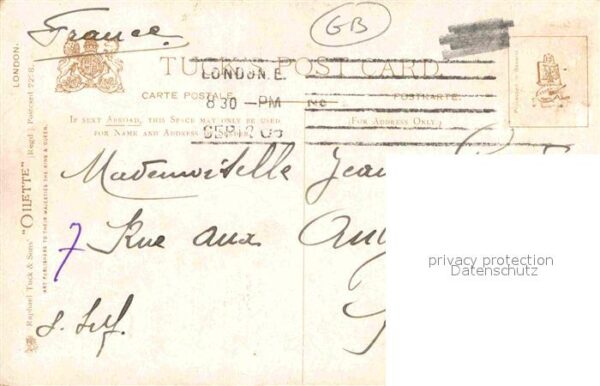 France
GB
TUCK'S POST CARD
LONDON. E.
CARTE POSTALE
POSTKARTE.
8 30 - PM
IF SENT ABROAD, THIS SPACE MAY ONLY BE USED
FOR NAME AND ADDRESS OF
(FOR ADDRESS ONLY.)
SEP 2 08
Mademoiselle Jean
7 Rue aux
privacy protection
Datenschutz
LONDON.
Raphael Tuck & Sons' "OILETTE" [Regd.] Postcard
ART PUBLISHERS TO THEIR MAJESTIES THE KING & QUEEN.